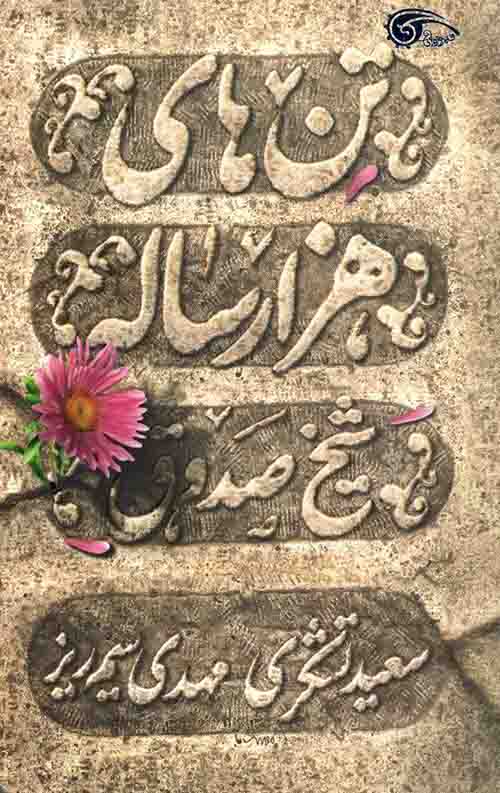 تن های
هزار ساله
شیخ صَدوق
سعید تشکری مهدی سیم ریز